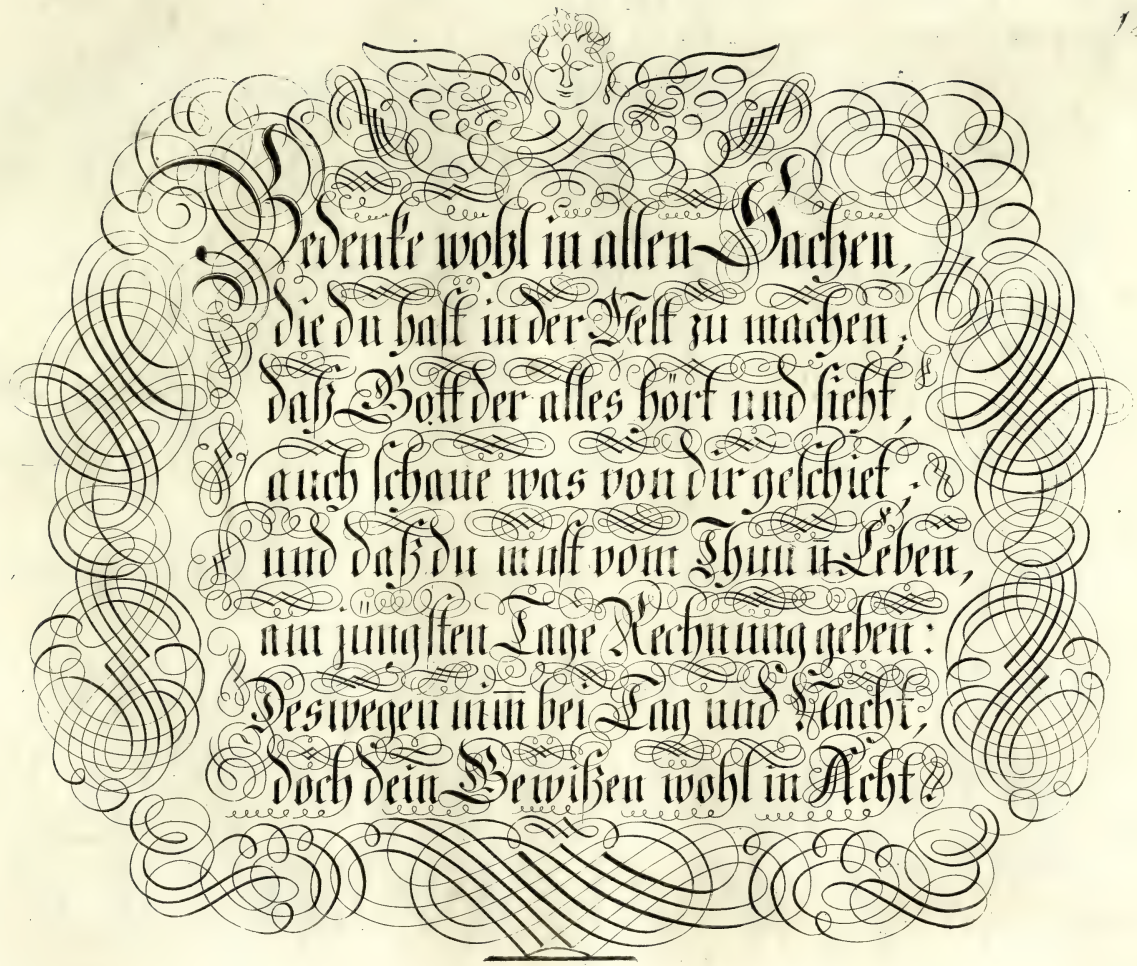 Bedenke wohl in allen Sachen,
die du hast in der Welt zu machen;
daß Gott der alles hört und sieht,
auch schaue was von dir geschiet;
und daß du must vom Thun ū Leben,
am jüngsten Tage Rechnung geben:
Deswegen nim̄ bei Tag und Nacht,
doch dein Gewißen wohl in Acht!